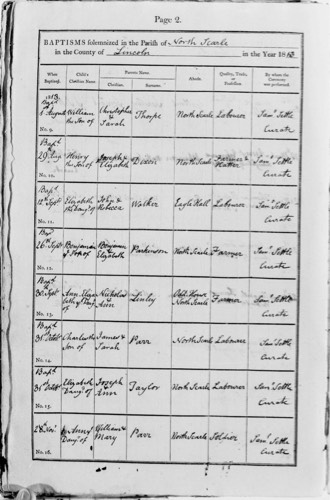 Page 2.
BAPTISMS solemnized in the Parish of North Scarle
in the County of Lincoln in the Year 1813
When Baptized.
Child's Christian Name.
Parents Name.
Christian.
Surname.
Abode.
Quality, Trade, or Profession.
By whom the Ceremony was performed.
1813. Bapd
August William the Son of Christopher & Sarah Thorpe North Scarle Labourer Saml Settle Curate
No. 9.
Bapd
29 Aug Henry the Son of Joseph & Elizabeth Dixon North Scarle Saml Settle Curate
No. 10.
Bapd
12th Sept Elizabeth the Daugr of John & Rebecca Walker Eagle Hall Labourer Saml Settle Curate
No. 11.
Bap
26th Sept Benjamin Son of Benjamin Elizabeth Parkinson North Scarle Farmer Saml Settle Curate
No. 12.
Bapd
30 Sept Ann Eliza- beth Daugr of Nicholas & Ann Linley North Scarle Farmer Saml Settle Curate
No. 13.
Bapd
31st October Charles the Son of James & Sarah Parr North Scarle Labourer Saml Settle Curate
No. 14.
Bapd
31st October Elizabeth Daugr of Joseph & Ann Taylor North Scarle Labourer Saml Settle Curate
No. 15.
28 Novr Daugr of William & Mary Parr North Scarle Soldier Saml Settle Curate
No. 16.